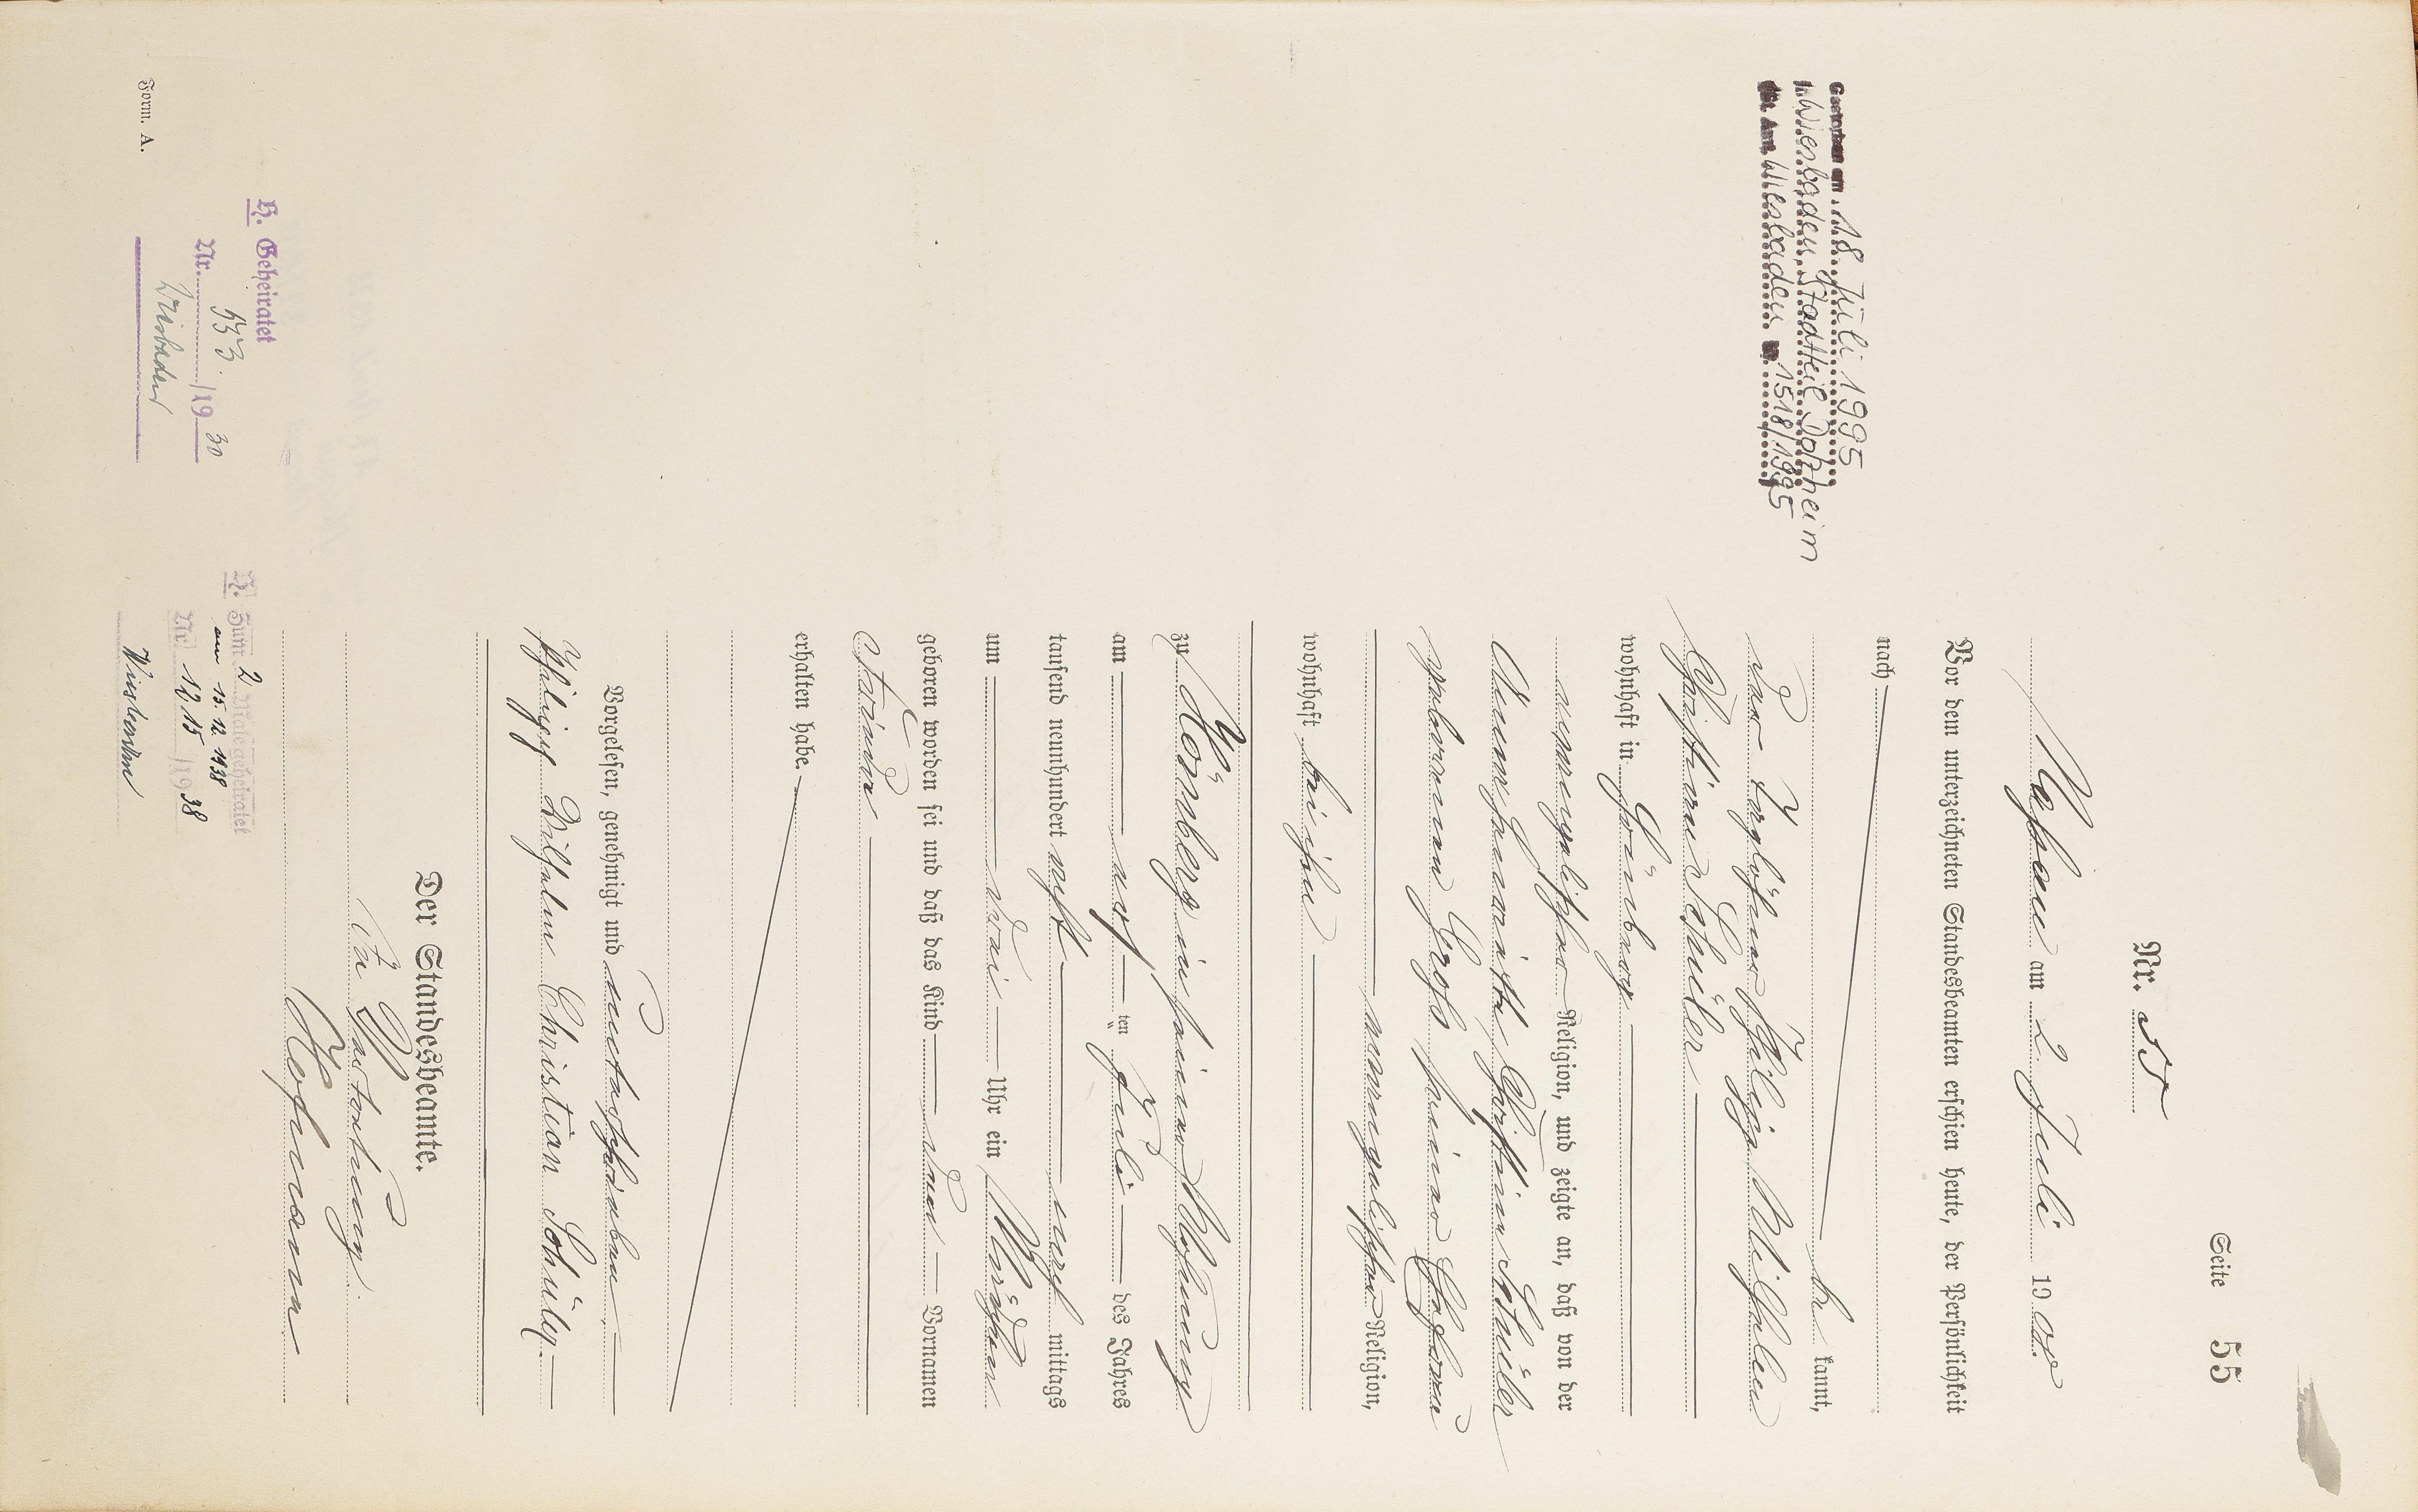 Seite 55
Nr. 55
Wehen am 2 Juli 1908.
Vor dem unterzeichneten Standesbeamten erschien heute, der Persönlichkeit
nach
be kannt,
der Taglöhner Philipp Wilhelm
Christian Schüler
wohnhaft in Hömberg
evangelischer Religion, und zeigte an, daß von der
Christine Schüler
geborenen Groß seiner Ehefrau
evangelischer Religion,
wohnhaft bei ihm
zu Hömberg in seiner Wohnung
am ten Juli des Jahres
tausend neunhundert acht nach mittags
um drei Uhr ein Mädchen
geboren worden sei und daß das Kind den Vornamen
Frieda
erhalten habe.
Vorgelesen, genehmigt und unterschrieben
Philipp Wilhelm Christian Schüler
Der Standesbeamte.
In Vertretung
Hofmann
Gestorben am 18. Juli 1995
in Wiesbaden, Stadtteil Dotzheim
St. Amt Wiesbaden Nr. 1518/1995
H. Geheiratet
Nr. 553 /19 30
Wiesbaden
H. Zum 2 Male geheiratet
am 15. 12. 1938
Nr 1215 /19 38
Wiesbaden
Form. A.